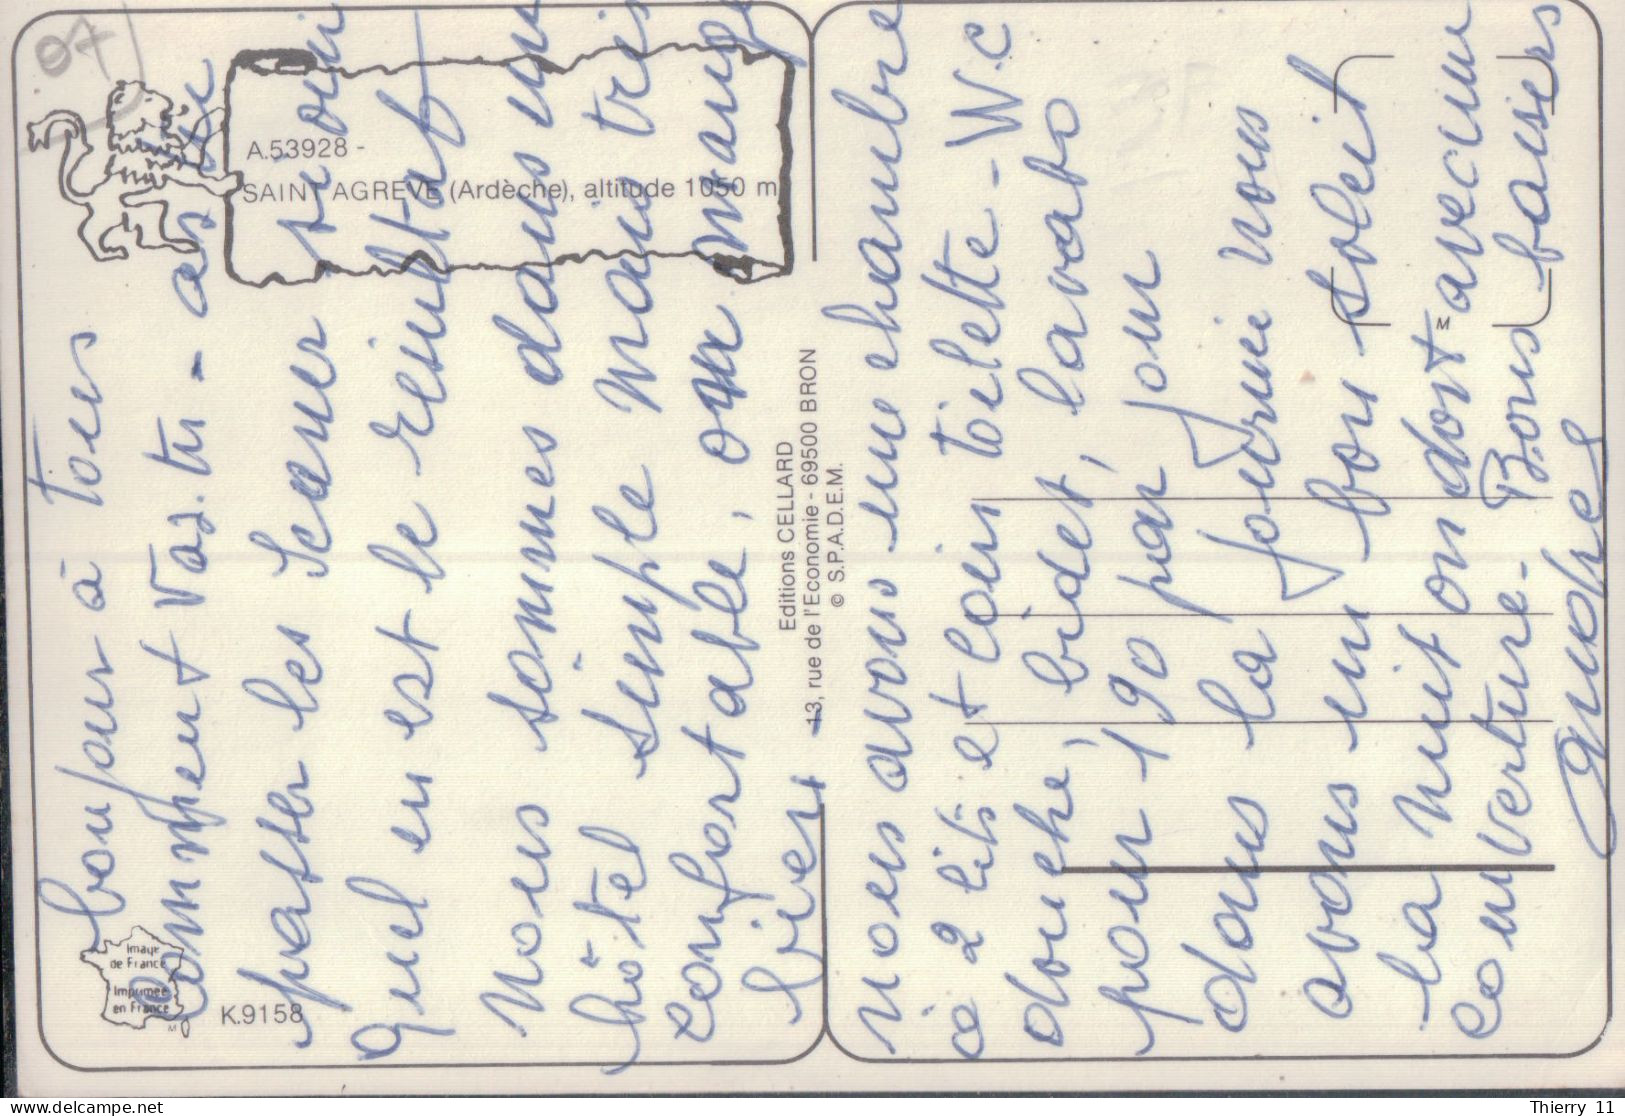 07
A.53928 -
SAINT AGREVE (Ardèche), altitude 1050 m
bonjour à tous
comment vas-tu - as tu
passer les Scaner si oui
quel en est le résultat
Nous sommes dans un
hôtel simple mais très
confortable, on mange
bien
Editions CELLARD
13, rue de l'Economie - 69500 BRON
© S.P.A.D.E.M.
Image
de France
Imprimée
en France
M
K.9158
nous avons une chambre
à 2 lits et coin toilette - W.C
douche, bidet, lavabo
pour 190 par jour
dans la journée nous
avons un bon soleil
la nuit on dort avec une
couverture - Bons baisers
M
delcampe.net
Thierry 11